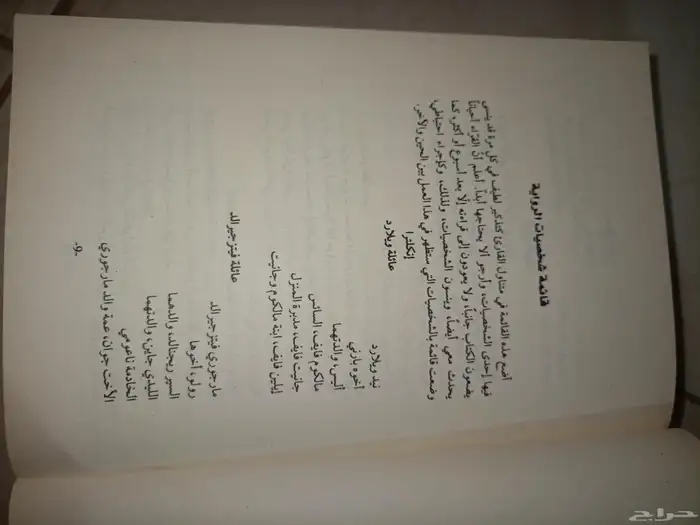 قائمة شخصيات الرواية
أضع هذه القائمة في متناول القارئ كتذكير لطيف في كل مرة قد ينسى
فيها إحدى الشخصيات، وأرجو ألا يحتاجها أبداً. أعلم أنّ القرّاء أحياناً
يضعون الكتاب جانباً، ولا يعودون إلى قراءته إلا بعد أسبوع أو أكثر، كما
يحدث معي أيضاً، وينسون الشخصيات، ولذلك، وكإجراء احتياطي،
وضعت قائمة بالشخصيات التي ستظهر في هذا العمل بين الحين والآخر.
إنكلترا
عائلة ويلارد
نيد ويلارد
أخوه بارني
أليس، والدتهما
مالكوم فايف، السائس
جانيت فايف، مدبرة المنزل
إيلين فايف، ابنة مالكوم وجانيت
عائلة فيتزجيرالد
مارجوري فيتزجيرالد
رولو، أخوها
السير ريجنالد، والدهما
الليدي جاين، والدتهما
الخادمة ناعومي
الأخت جوان، عمة والد مارجوري
-9-
حراج